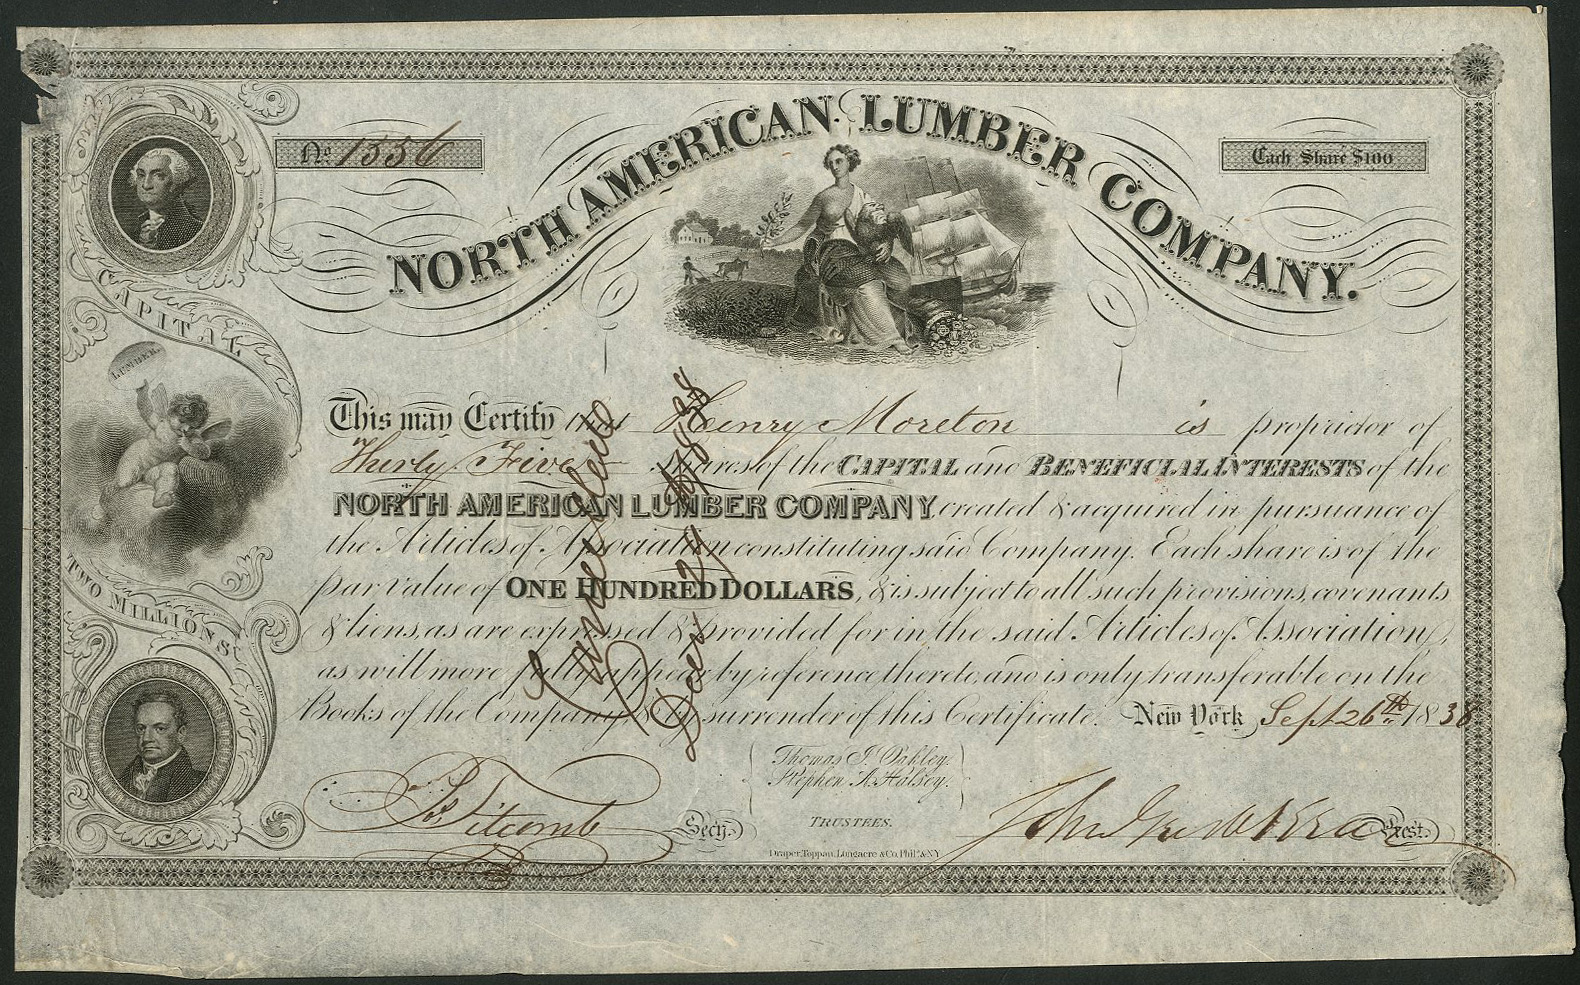 NORTH AMERICAN LUMBER COMPANY.
No. 1336
Each Share $100
CAPITAL
LUMBER
TWO MILLIONS
This may Certify that Henry Moreton is proprietor of
Thirty Five Shares of the CAPITAL and BENEFICIAL INTERESTS of the
NORTH AMERICAN LUMBER COMPANY, created & acquired in pursuance of
the Articles of Association constituting said Company. Each share is of the
par value of ONE HUNDRED DOLLARS, & is subject to all such provisions, covenants
& liens, as are expressed & provided for in the said Articles of Association,
as will more fully appear by reference thereto, and is only transferable on the
Books of the Company & by surrender of this Certificate. New York Sept 26th 1838
Cancelled
Decr 29 1838
Titcomb Secy.
Thomas J. Oakley.
Stephen A. Halsey.
TRUSTEES.
John Prest.
Draper, Toppan, Longacre & Co. Phila. & N.Y.